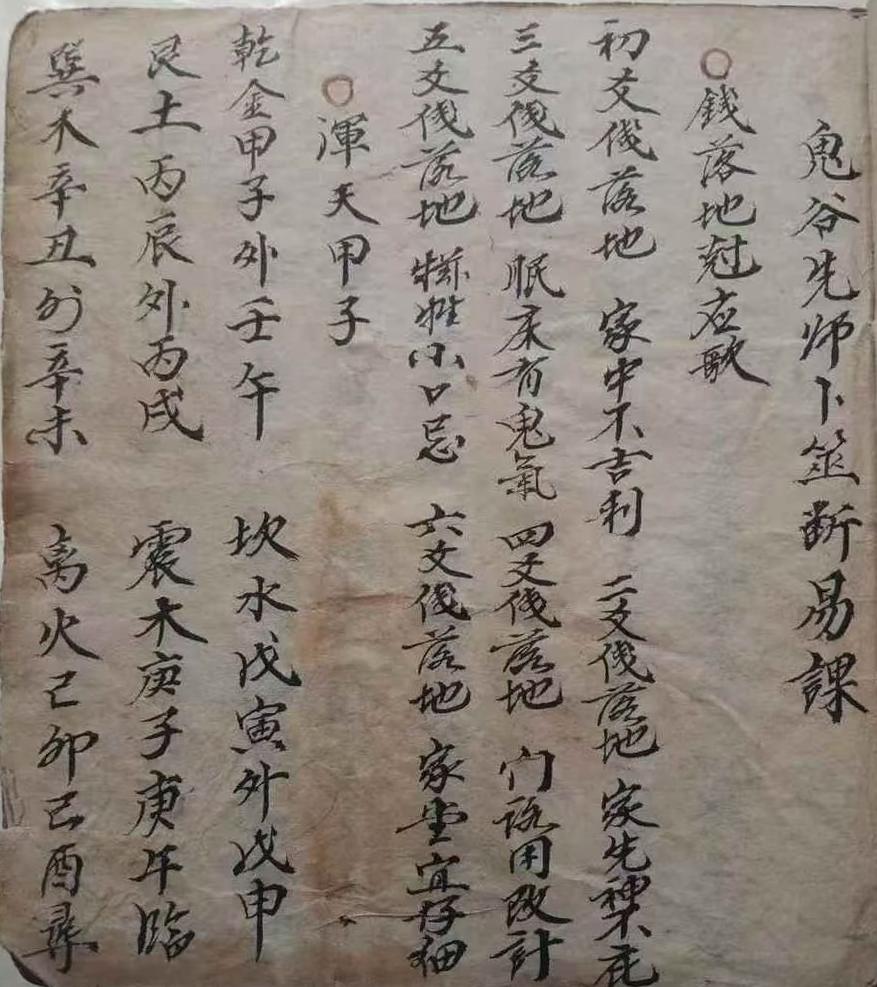 鬼谷先师卜筮断易課
〇錢落地尅应歌
初爻伐落地 家中不吉利 二爻伐落地 家先神不在
三爻伐落地 眠床有鬼氣 四爻伐落地 门路用改計
五爻伐落地 牲小口忌 六爻伐落地 家堂宜仔细
〇渾天甲子
乾金甲子外壬午 坎水戊寅外戊申
艮土丙辰外丙戌 震木庚子庚午臨
巽木辛丑外辛未 离火己卯己酉尋